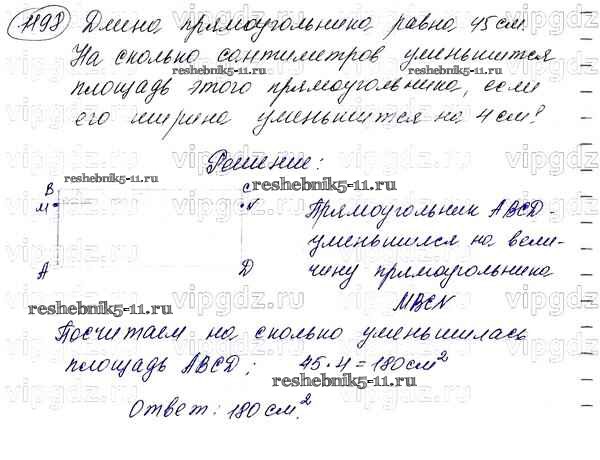 1198 Длина прямоугольника равна 45 см.
На сколько сантиметров уменьшится
reshebnik5-11.ru
площадь этого прямоугольника, если
его ширина уменьшится на 4 см?
vipgdz.ru
Решение:
reshebnik5-11.ru
reshebnik5-11.ru
B C
M N
A D
Прямоугольник ABCD -
уменьшился на вели-
чину прямоугольника
MBCN
reshebnik5-11.ru
vipgdz.ru
Посчитаем на сколько уменьшилась
площадь ABCD; 45·4=180см²
reshebnik5-11.ru
Ответ: 180 см².